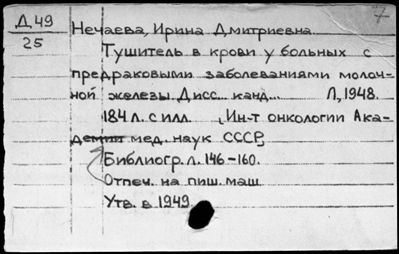 Д 49
25
7
Нечаева, Ирина Дмитриевна
Тушитель в крови у больных с
предраковыми заболеваниями молоч-
ной железы. Дисс... канд... Л, 1948.
184 л. с илл. , Ин-т онкологии Ака-
демии мед. наук СССР,
Библиогр. л. 146-160.
Отпеч. на пиш. маш.
Утв. в 1949